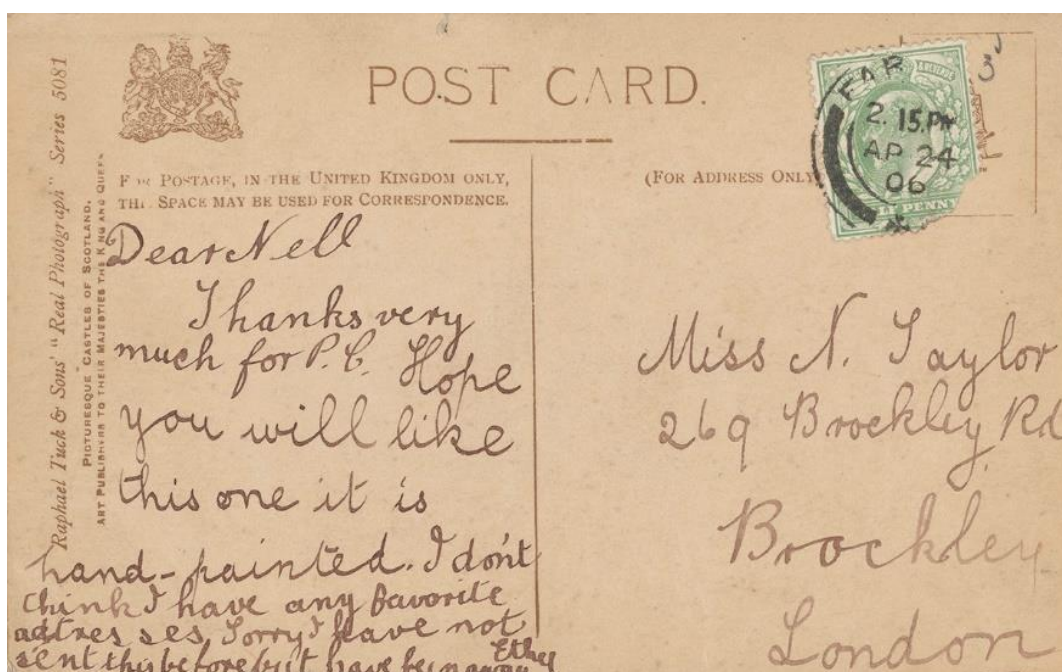 Raphael Tuck & Sons' "Real Photograph" Series 5081
PICTURESQUE CASTLES OF SCOTLAND.
ART PUBLISHERS TO THEIR MAJESTIES THE KING AND QUEEN
POST CARD.
FOR POSTAGE, IN THE UNITED KINGDOM ONLY,
THIS SPACE MAY BE USED FOR CORRESPONDENCE.
(FOR ADDRESS ONLY
2.15.PM
AP 24
06
Dear Nell
Thanks very
much for P.C. Hope
you will like
this one it is
hand-painted. I don't
think I have any favorite
actresses, Sorry I have not
sent this before but have been away
Ethel
Miss N. Taylor
269 Brockley Rd
Brockley
London